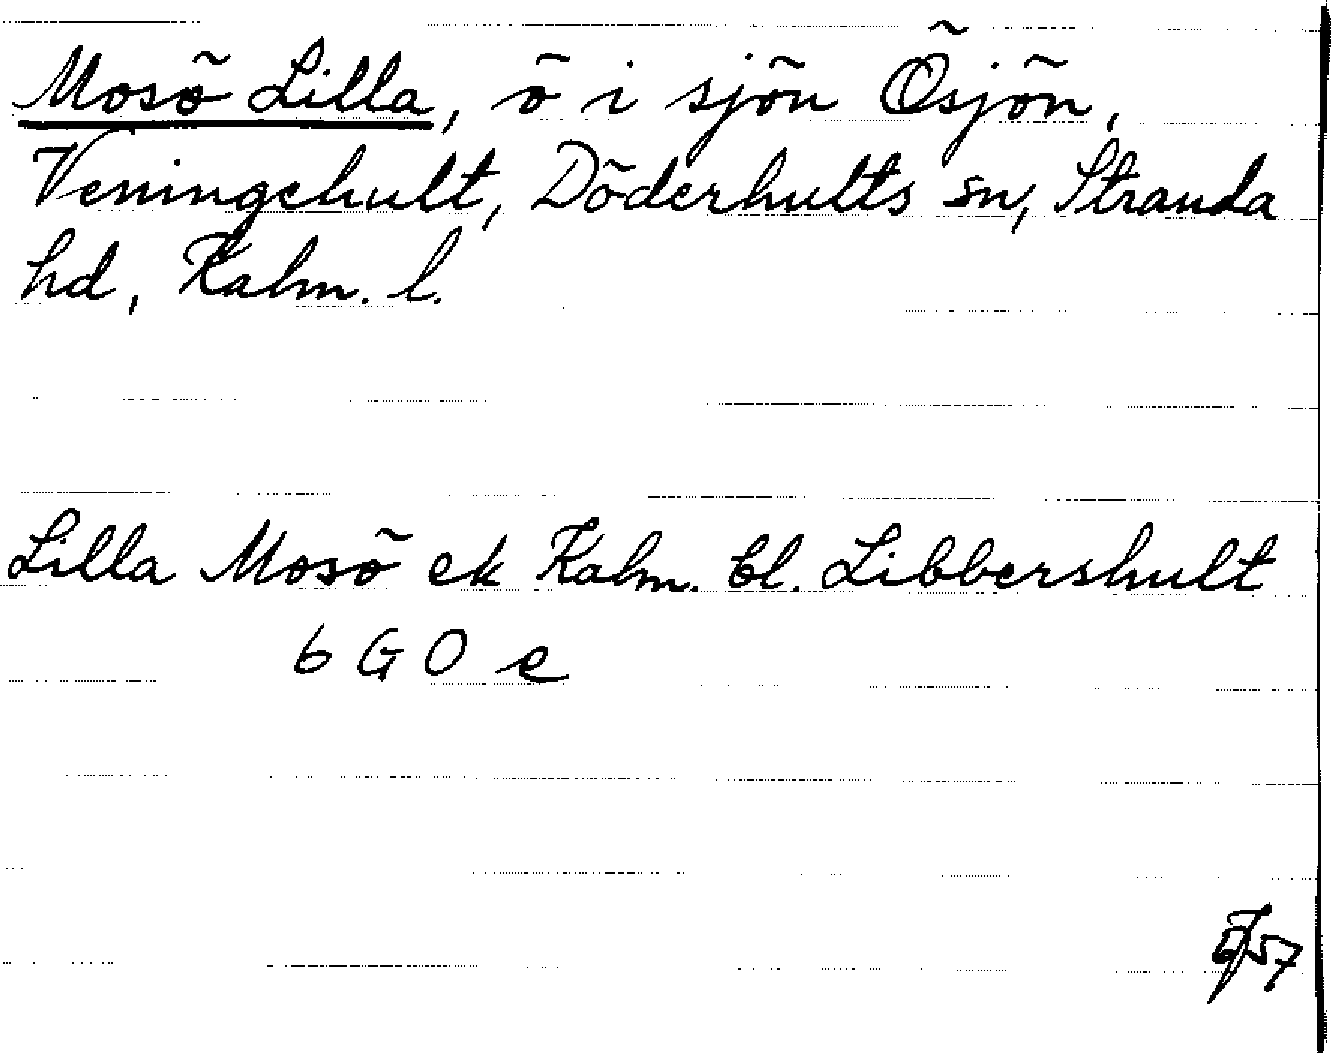 Mosö Lilla, ö i sjön Ösjön,
Veningehult, Döderhults sn, Stranda
hd, Kalm. l.
Lilla Mosö ek Kalm. bl. Libbershult
6 G O e